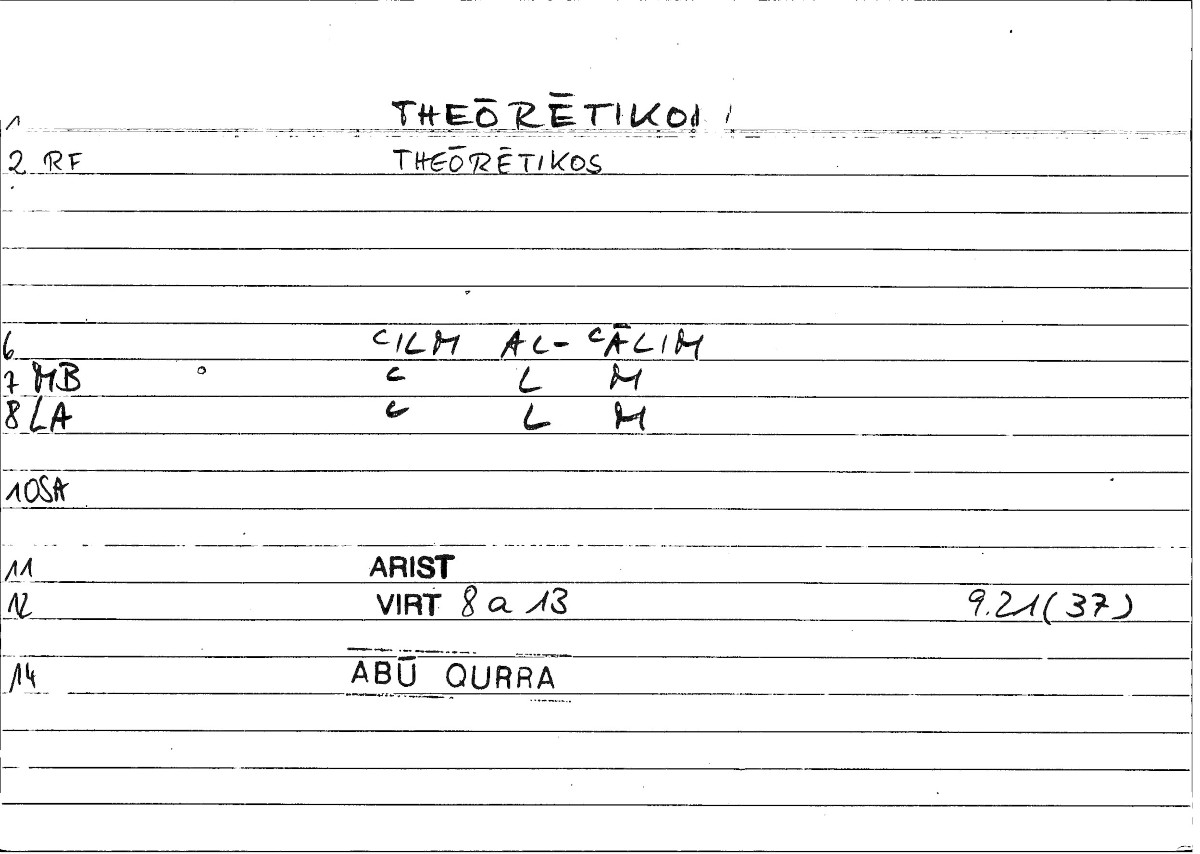 1 THEŌRĒTIKOI
2 RF THEŌRĒTIKOS
6 CILM AL-CĀLIM
7 MB C L M
8 LA C L M
10SA
11 ARIST
12 VIRT 8a 13 9.21(37)
14 ABŪ QURRA